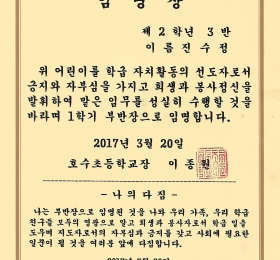 임 명 장
제 2 학년 3 반
이 름 진 수 정
위 어린이를 학급 자치활동의 선도자로서
긍지와 자부심을 가지고 희생과 봉사정신을
발휘하여 맡은 임무를 성실히 수행할 것을
바라며 1학기 부반장으로 임명합니다.
2017년 3월 20일
호수초등학교장 이 종 원
- 나 의 다 짐 -
나는 부반장으로 임명된 것을 나와 우리 가족, 우리 학급
친구들 모두의 영광으로 알고 희생과 봉사자로서 학급 일을
도우며 지도자로서의 자부심과 긍지를 갖고 사회에 필요한
일꾼이 될 것을 여러분 앞에 다짐합니다.